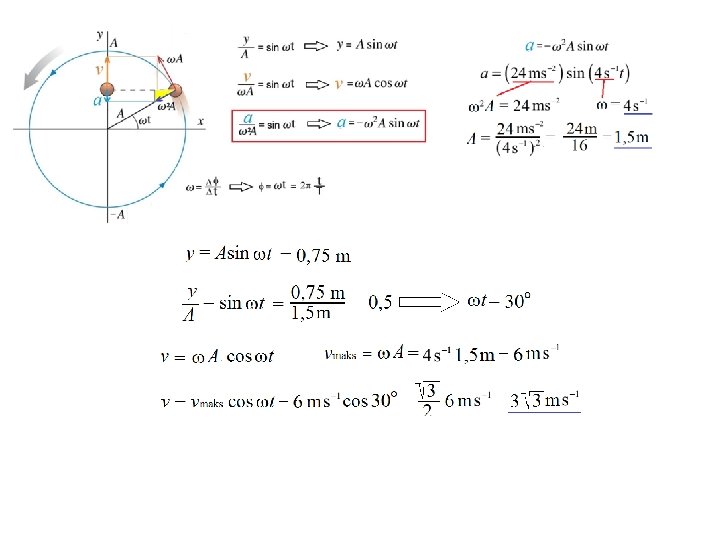 y
A
ωA
v
a
A
ω²A
ωt
x
-A
y/A = sin ωt ⇒ y = A sin ωt
v/ωA = sin ωt ⇒ v = ωA cos ωt
a/ω²A = sin ωt ⇒ a = -ω²A sin ωt
ω = Δϕ/Δt ⇒ ϕ = ωt = 2π t/T
a = -ω²A sin ωt
a = (24 ms⁻²) sin (4 s⁻¹t)
ω²A = 24 ms⁻² ω = 4 s⁻¹
A = 24 ms⁻²/(4 s⁻¹)² = 24 m/16 = 1,5 m
y = A sin ωt = 0,75 m
y/A = sin ωt = 0,75 m/1,5 m 0,5 ⇒ ωt = 30°
v = ω A cos ωt vmaks = ω A = 4 s⁻¹ 1,5 m = 6 ms⁻¹
v = vmaks cos ωt = 6 ms⁻¹ cos 30° √3/2 6 ms⁻¹ 3√3 ms⁻¹